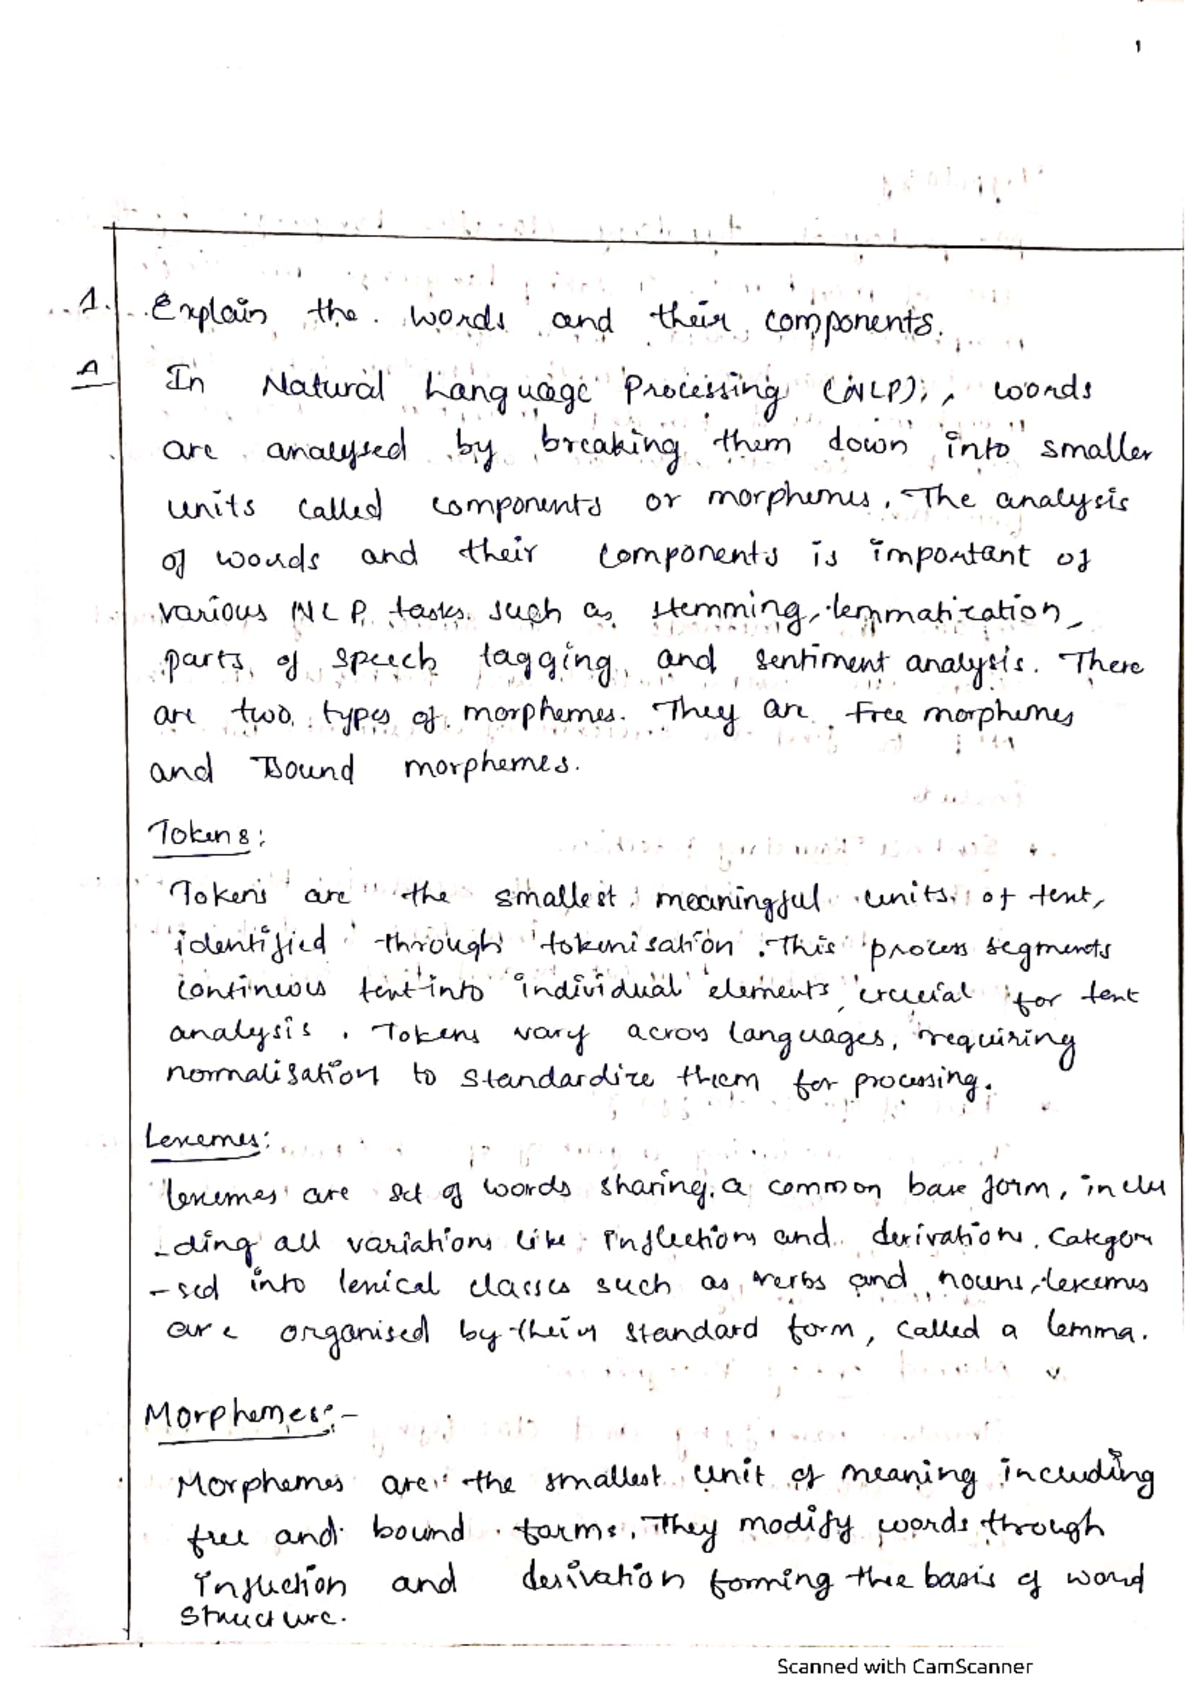 1
1. Explain the words and their components.
A In Natural Language Processing (NLP), words
are analysed by breaking them down into smaller
units called components or morphemes. The analysis
of words and their components is important of
various NLP tasks such as stemming, lemmatization,
parts of speech tagging, and sentiment analysis. There
are two types of morphemes. They are Free morphemes
and Bound morphemes.
Tokens:
Tokens are the smallest meaningful units of text,
identified through tokenisation. This process segments
continuous text into individual elements crucial for text
analysis. Tokens vary across languages, requiring
normalisation to standardize them for processing.
Lexemes:
lexemes are set of words sharing a common base form, inclu
-ding all variations like inflections and derivations. Categori
-sed into lexical classes such as verbs and nouns, lexemes
are organised by their standard form, called a lemma.
Morphemes:-
Morphemes are the smallest unit of meaning including
free and bound forms. They modify words through
inflection and derivation forming the basis of word
structure.
Scanned with CamScanner